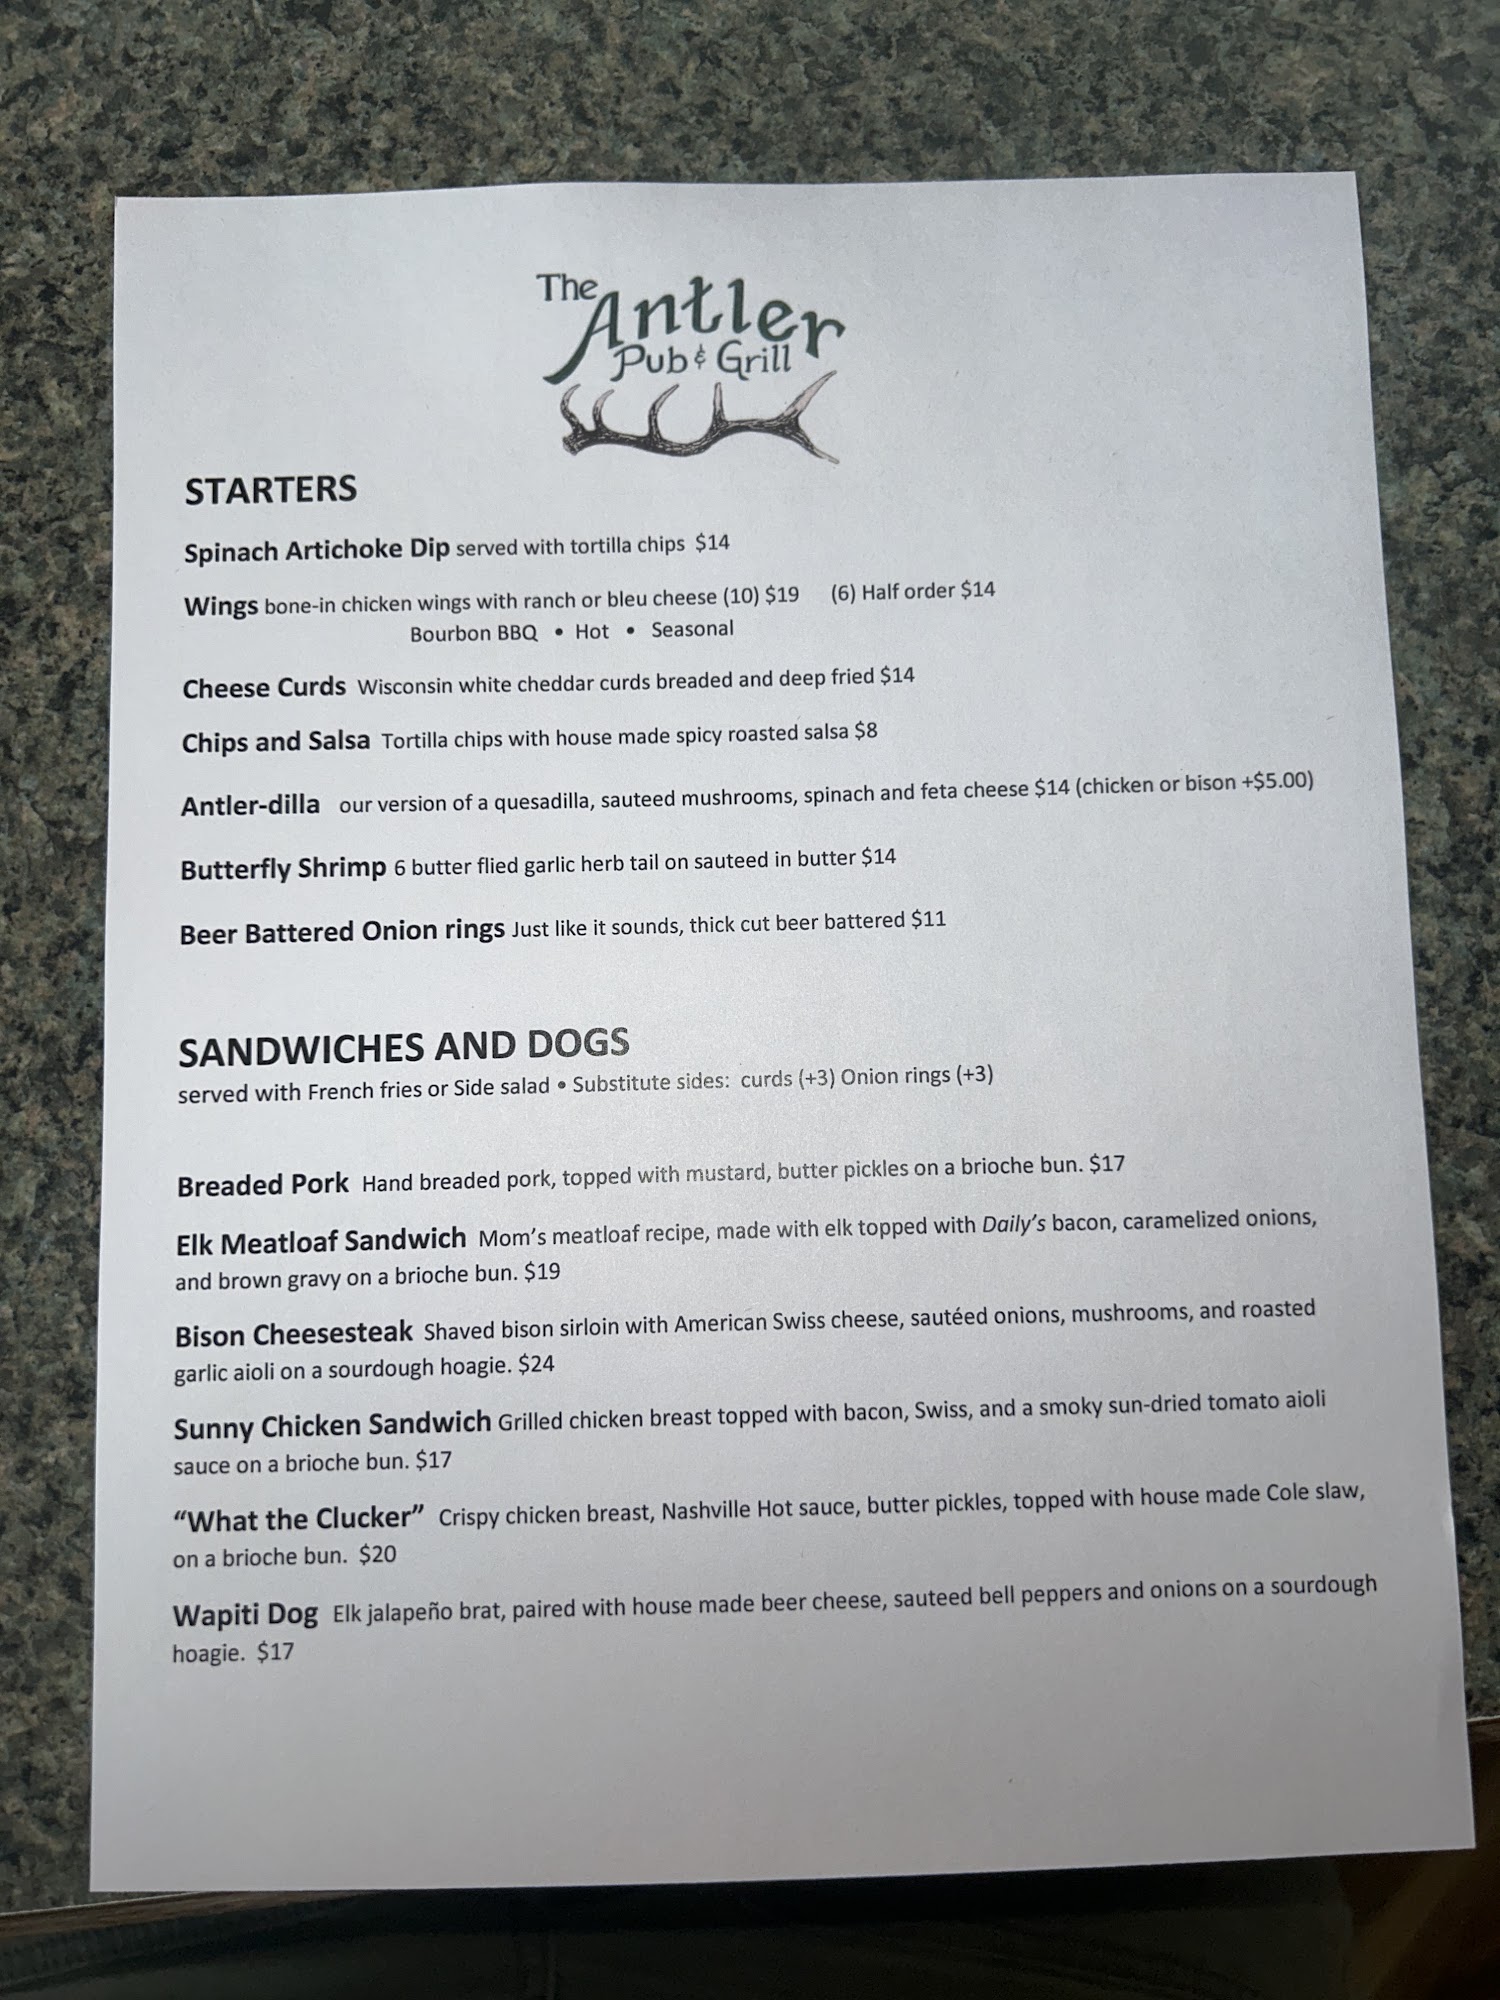 The Antler
Pub & Grill
STARTERS
Spinach Artichoke Dip served with tortilla chips $14
Wings bone-in chicken wings with ranch or bleu cheese (10) $19 (6) Half order $14
Bourbon BBQ • Hot • Seasonal
Cheese Curds Wisconsin white cheddar curds breaded and deep fried $14
Chips and Salsa Tortilla chips with house made spicy roasted salsa $8
Antler-dilla our version of a quesadilla, sauteed mushrooms, spinach and feta cheese $14 (chicken or bison +$5.00)
Butterfly Shrimp 6 butter flied garlic herb tail on sauteed in butter $14
Beer Battered Onion rings Just like it sounds, thick cut beer battered $11
SANDWICHES AND DOGS
served with French fries or Side salad • Substitute sides: curds (+3) Onion rings (+3)
Breaded Pork Hand breaded pork, topped with mustard, butter pickles on a brioche bun. $17
Elk Meatloaf Sandwich Mom's meatloaf recipe, made with elk topped with Daily's bacon, caramelized onions,
and brown gravy on a brioche bun. $19
Bison Cheesesteak Shaved bison sirloin with American Swiss cheese, sautéed onions, mushrooms, and roasted
garlic aioli on a sourdough hoagie. $24
Sunny Chicken Sandwich Grilled chicken breast topped with bacon, Swiss, and a smoky sun-dried tomato aioli
sauce on a brioche bun. $17
“What the Clucker” Crispy chicken breast, Nashville Hot sauce, butter pickles, topped with house made Cole slaw,
on a brioche bun. $20
Wapiti Dog Elk jalapeño brat, paired with house made beer cheese, sauteed bell peppers and onions on a sourdough
hoagie. $17